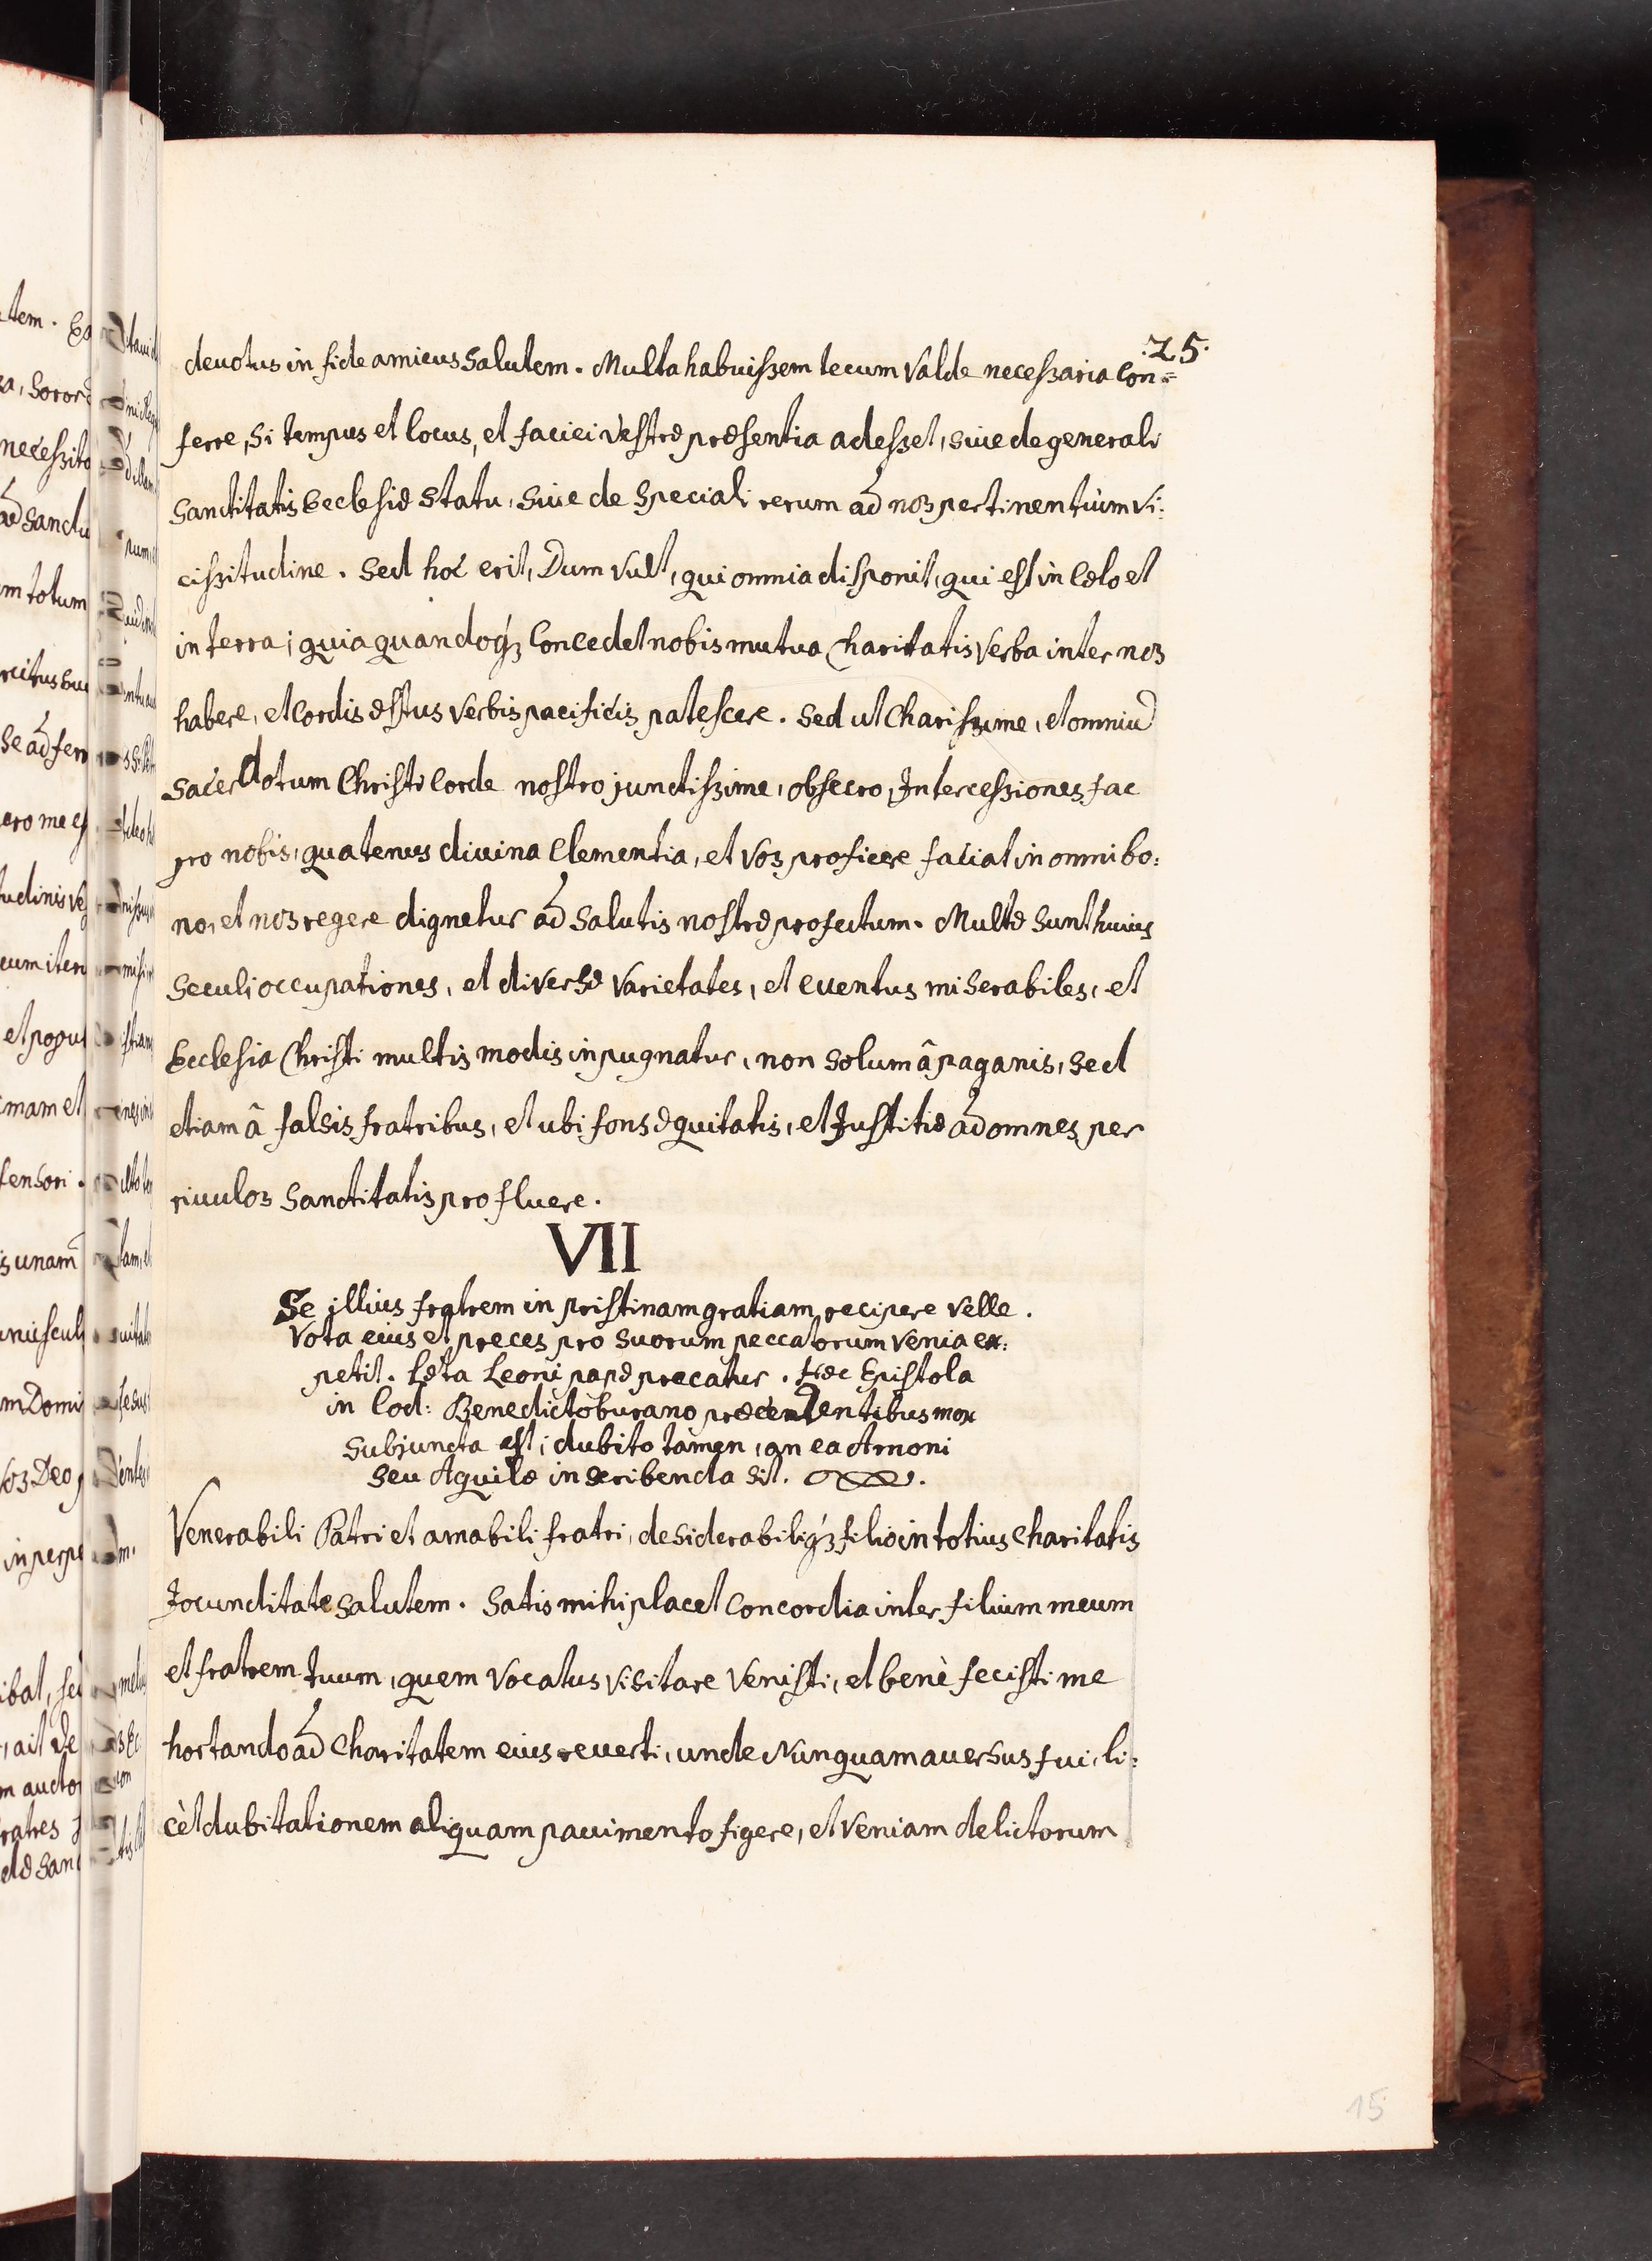 .25.
devotus in fide amicus Salutem. Multa habuissem tecum Valde necessaria Con=
ferre, Si tempus et locus, et faciei Vestræ præsentia adesset, siue de generali
Sanctitatis Ecclesiæ Statu, Siue de Speciali rerum ad nos pertinentium Vi:
cissitudine. Sed hoc erit, Dum Vult, qui omnia disponit, qui est in Cælo et
in terra; quia quandoq́ꝫ Concedet nobis mutua Charitatis Verba inter nos
habere, et Cordis æstus Verbis pacificis patescere. Sed ut Charissime, et omniū
Sacerdotum Christi Corde nostro junctissime, obsecro, Intercessiones fac
pro nobis, quatenus diuina Clementia, et Vos proficere faciat in omni bo:
no, et nos regere dignetur ad Salutis nostræ profectum. Multæ Sunt huius
Seculi occupationes, et diVersæ Varietates, et euentus miserabiles, et
Ecclesia Christi multis modis inpugnatur, non Solum â paganis, Sed
etiam â falsis fratribus, et ubi fons æquitatis, et Justitiæ ad omnes per
riuulos Sanctitatis profluere.
VII
Se illius fratrem in pristinam gratiam recipere Velle.
Vota eius et preces pro Suorum peccatorum Venia ex:
petit. Læta Leoni papæ precatur. Hæc Epistola
in Cod: Benedictoburano præcedentibus mox
Subjuncta est; dubito tamen, an ea Arnoni
Seu Aquilæ inscribenda Sit.
Venerabili Patri et amabili fratri, desiderabiliq́ꝫ filio in totius Charitatis
Jocunditate Salutem. Satis mihi placet Concordia inter filium meum
et fratrem tuum, quem Vocatus Visitare Venisti, et benè fecisti me
hortando ad Charitatem eius reuerti, unde Nunquam auersus fui, li:
cèt dubitationem aliquam pauimento figere, et Veniam delictorum
15